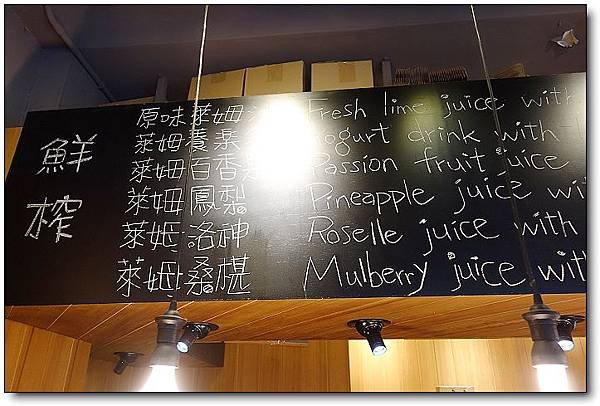 鮮榨
原味萊姆 Fresh lime juice with
萊姆養樂 Yogurt drink with
萊姆百香 Passion fruit juice
萊姆鳳梨 Pineapple juice wi
萊姆洛神 Roselle juice with
萊姆桑椹 Mulberry juice with